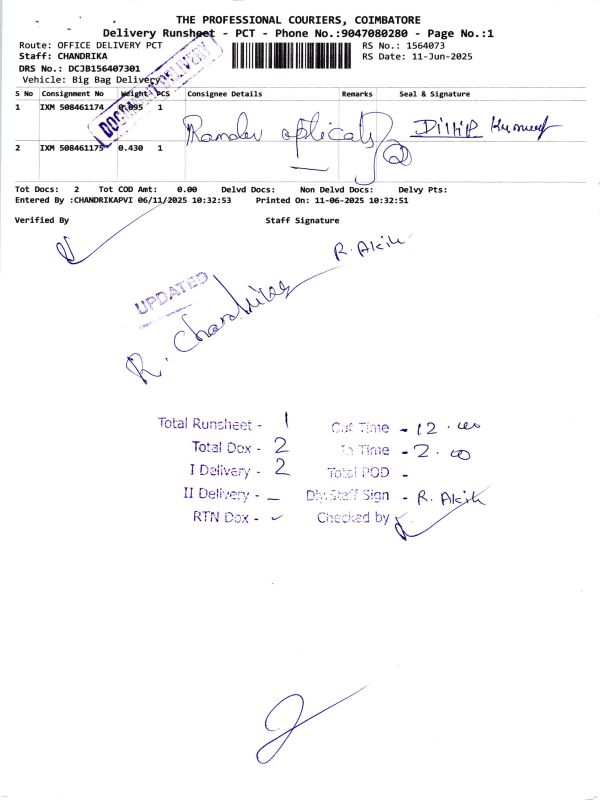 THE PROFESSIONAL COURIERS, COIMBATORE
Delivery Runsheet - PCT - Phone No.:9047080280 - Page No.:1
Route: OFFICE DELIVERY PCT
RS No.: 1564073
Staff: CHANDRIKA
RS Date: 11-Jun-2025
DRS No.: DCJB156407301
Vehicle: Big Bag Delivery
DOCUMENT DELIVERY
S No Consignment No Weight PCS Consignee Details Remarks Seal & Signature
1 IXM 508461174 0.095 1
Ramdev opticals Dillip Kumar
2 IXM 508461175 0.430 1
2
Tot Docs: 2 Tot COD Amt: 0.00 Delvd Docs: Non Delvd Docs: Delvy Pts:
Entered By :CHANDRIKAPVI 06/11/2025 10:32:53 Printed On: 11-06-2025 10:32:51
Verified By Staff Signature
R. Akik
UPDATED
R. Chandrika
Total Runsheet - 1
Total Dox - 2
I Delivery - 2
II Delivery - –
RTN Dox -
Out Time - 12.00
In Time - 2.00
Total POD -
Dly.Staff Sign - R. Akik
Checked by